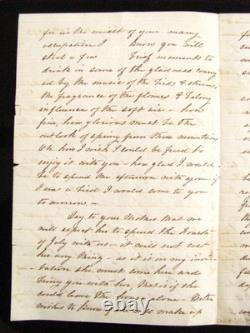 for in the midst of your many
occupations I know you will
steal a few brief moments to
drink in some of the gladness
ed by the music of the birds & streams,
the fragrance of the flowers &
influences of the soft air - how
fine, how glorious must be the
outlook of spring from those mountains
Oh how I wish I could be
enjoy it with you - how glad I would
be to spend the afternoon with you if
I was a bird I would come to you
to-morrow -
Say to your Mother that we
will expect her to spend the fourth
of July with us - it will not cost
her any thing - as it is on my invi-
tation she must come here and
bring you with her, that is if she
could leave the alone -
wishes to know if you make up